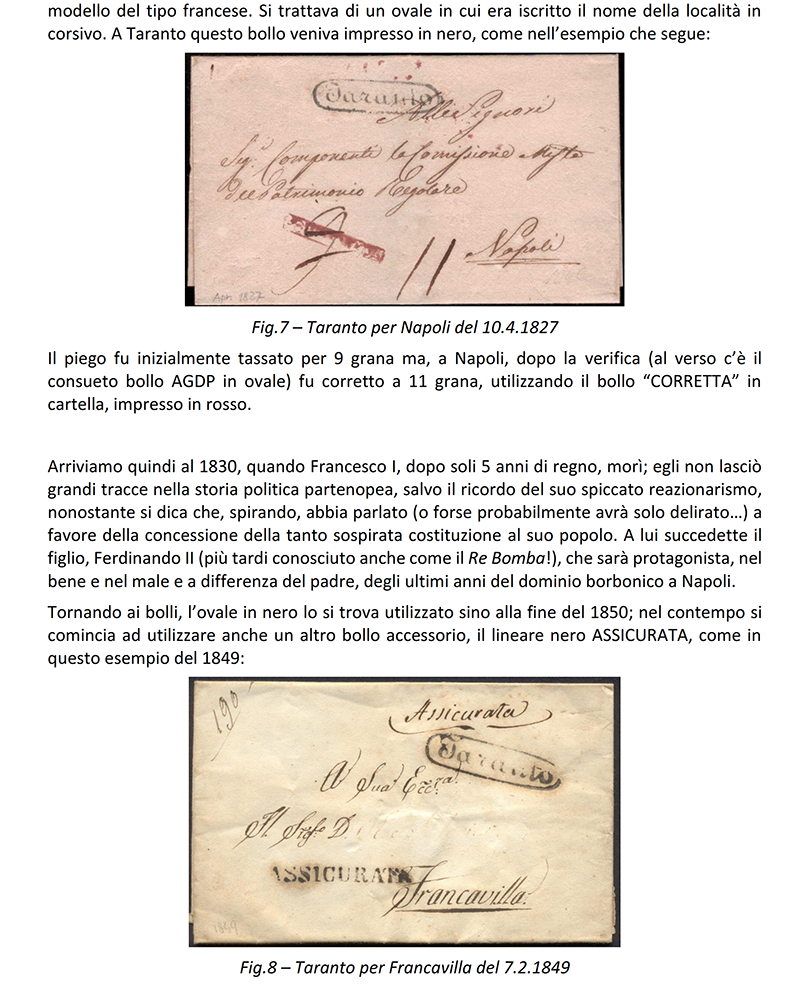 modello del tipo francese. Si trattava di un ovale in cui era iscritto il nome della località in
corsivo. A Taranto questo bollo veniva impresso in nero, come nell'esempio che segue:
Taranto
Alli Signori
Sig.ri Componenti la Comissione Mista
del Patrimonio Regolare
9
11
Napoli
Apr. 1827
Fig.7 – Taranto per Napoli del 10.4.1827
Il piego fu inizialmente tassato per 9 grana ma, a Napoli, dopo la verifica (al verso c'è il
consueto bollo AGDP in ovale) fu corretto a 11 grana, utilizzando il bollo “CORRETTA” in
cartella, impresso in rosso.
Arriviamo quindi al 1830, quando Francesco I, dopo soli 5 anni di regno, morì; egli non lasciò
grandi tracce nella storia politica partenopea, salvo il ricordo del suo spiccato reazionarismo,
nonostante si dica che, spirando, abbia parlato (o forse probabilmente avrà solo delirato…) a
favore della concessione della tanto sospirata costituzione al suo popolo. A lui succedette il
figlio, Ferdinando II (più tardi conosciuto anche come il Re Bomba!), che sarà protagonista, nel
bene e nel male e a differenza del padre, degli ultimi anni del dominio borbonico a Napoli.
Tornando ai bolli, l'ovale in nero lo si trova utilizzato sino alla fine del 1850; nel contempo si
comincia ad utilizzare anche un altro bollo accessorio, il lineare nero ASSICURATA, come in
questo esempio del 1849:
190
Assicurata
Taranto
A Sua Ecc.za
Il Sig.e D.
ASSICURATA
Francavilla
1849
Fig.8 – Taranto per Francavilla del 7.2.1849